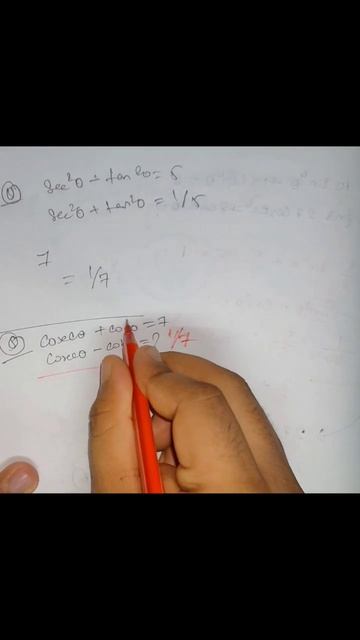 Q sec²θ - tan²θ = 5
sec²θ + tan²θ = 1/5
7
= 1/7
Q cosecθ + cotθ = 7
cosecθ - cotθ = ? 1/7